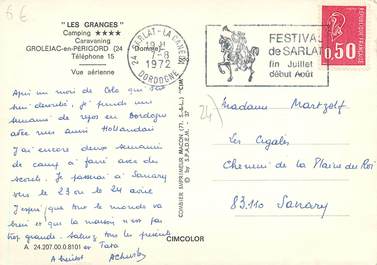 6€
"LES GRANGES"
Camping ★★★★
Caravaning
GROLEJAC-en-PERIGORD (24 Domme)
Téléphone 15
Vue aérienne
24 SARLAT-LA CANEDA
19 H
7-8
1972
DORDOGNE
FESTIVAL
de SARLAT
fin Juillet
début Août
0,50
Après un mois de Colo qui s'est
bien déroulé, je prends une
semaine de repos en Dordogne
avec mes amis Hollandais
J'ai encore deux semaines
de camp à faire avec des
scouts. Je passe à Sanary
sur le 23 ou le 24 août.
J'espère que tout le monde va
bien et que la maison n'est pas
trop grande. Saluez tous les présents
A bientôt
COMBIER IMPRIMEUR MACON (71. S.-&-L.) "CIM"
© by S.P.A.D.E.M. - 37
24
Madame Martzolf
Les Cigales
Chemin de la Plaine du Roi
83110 Sanary
A 24.207.00.0.8101
CIMCOLOR